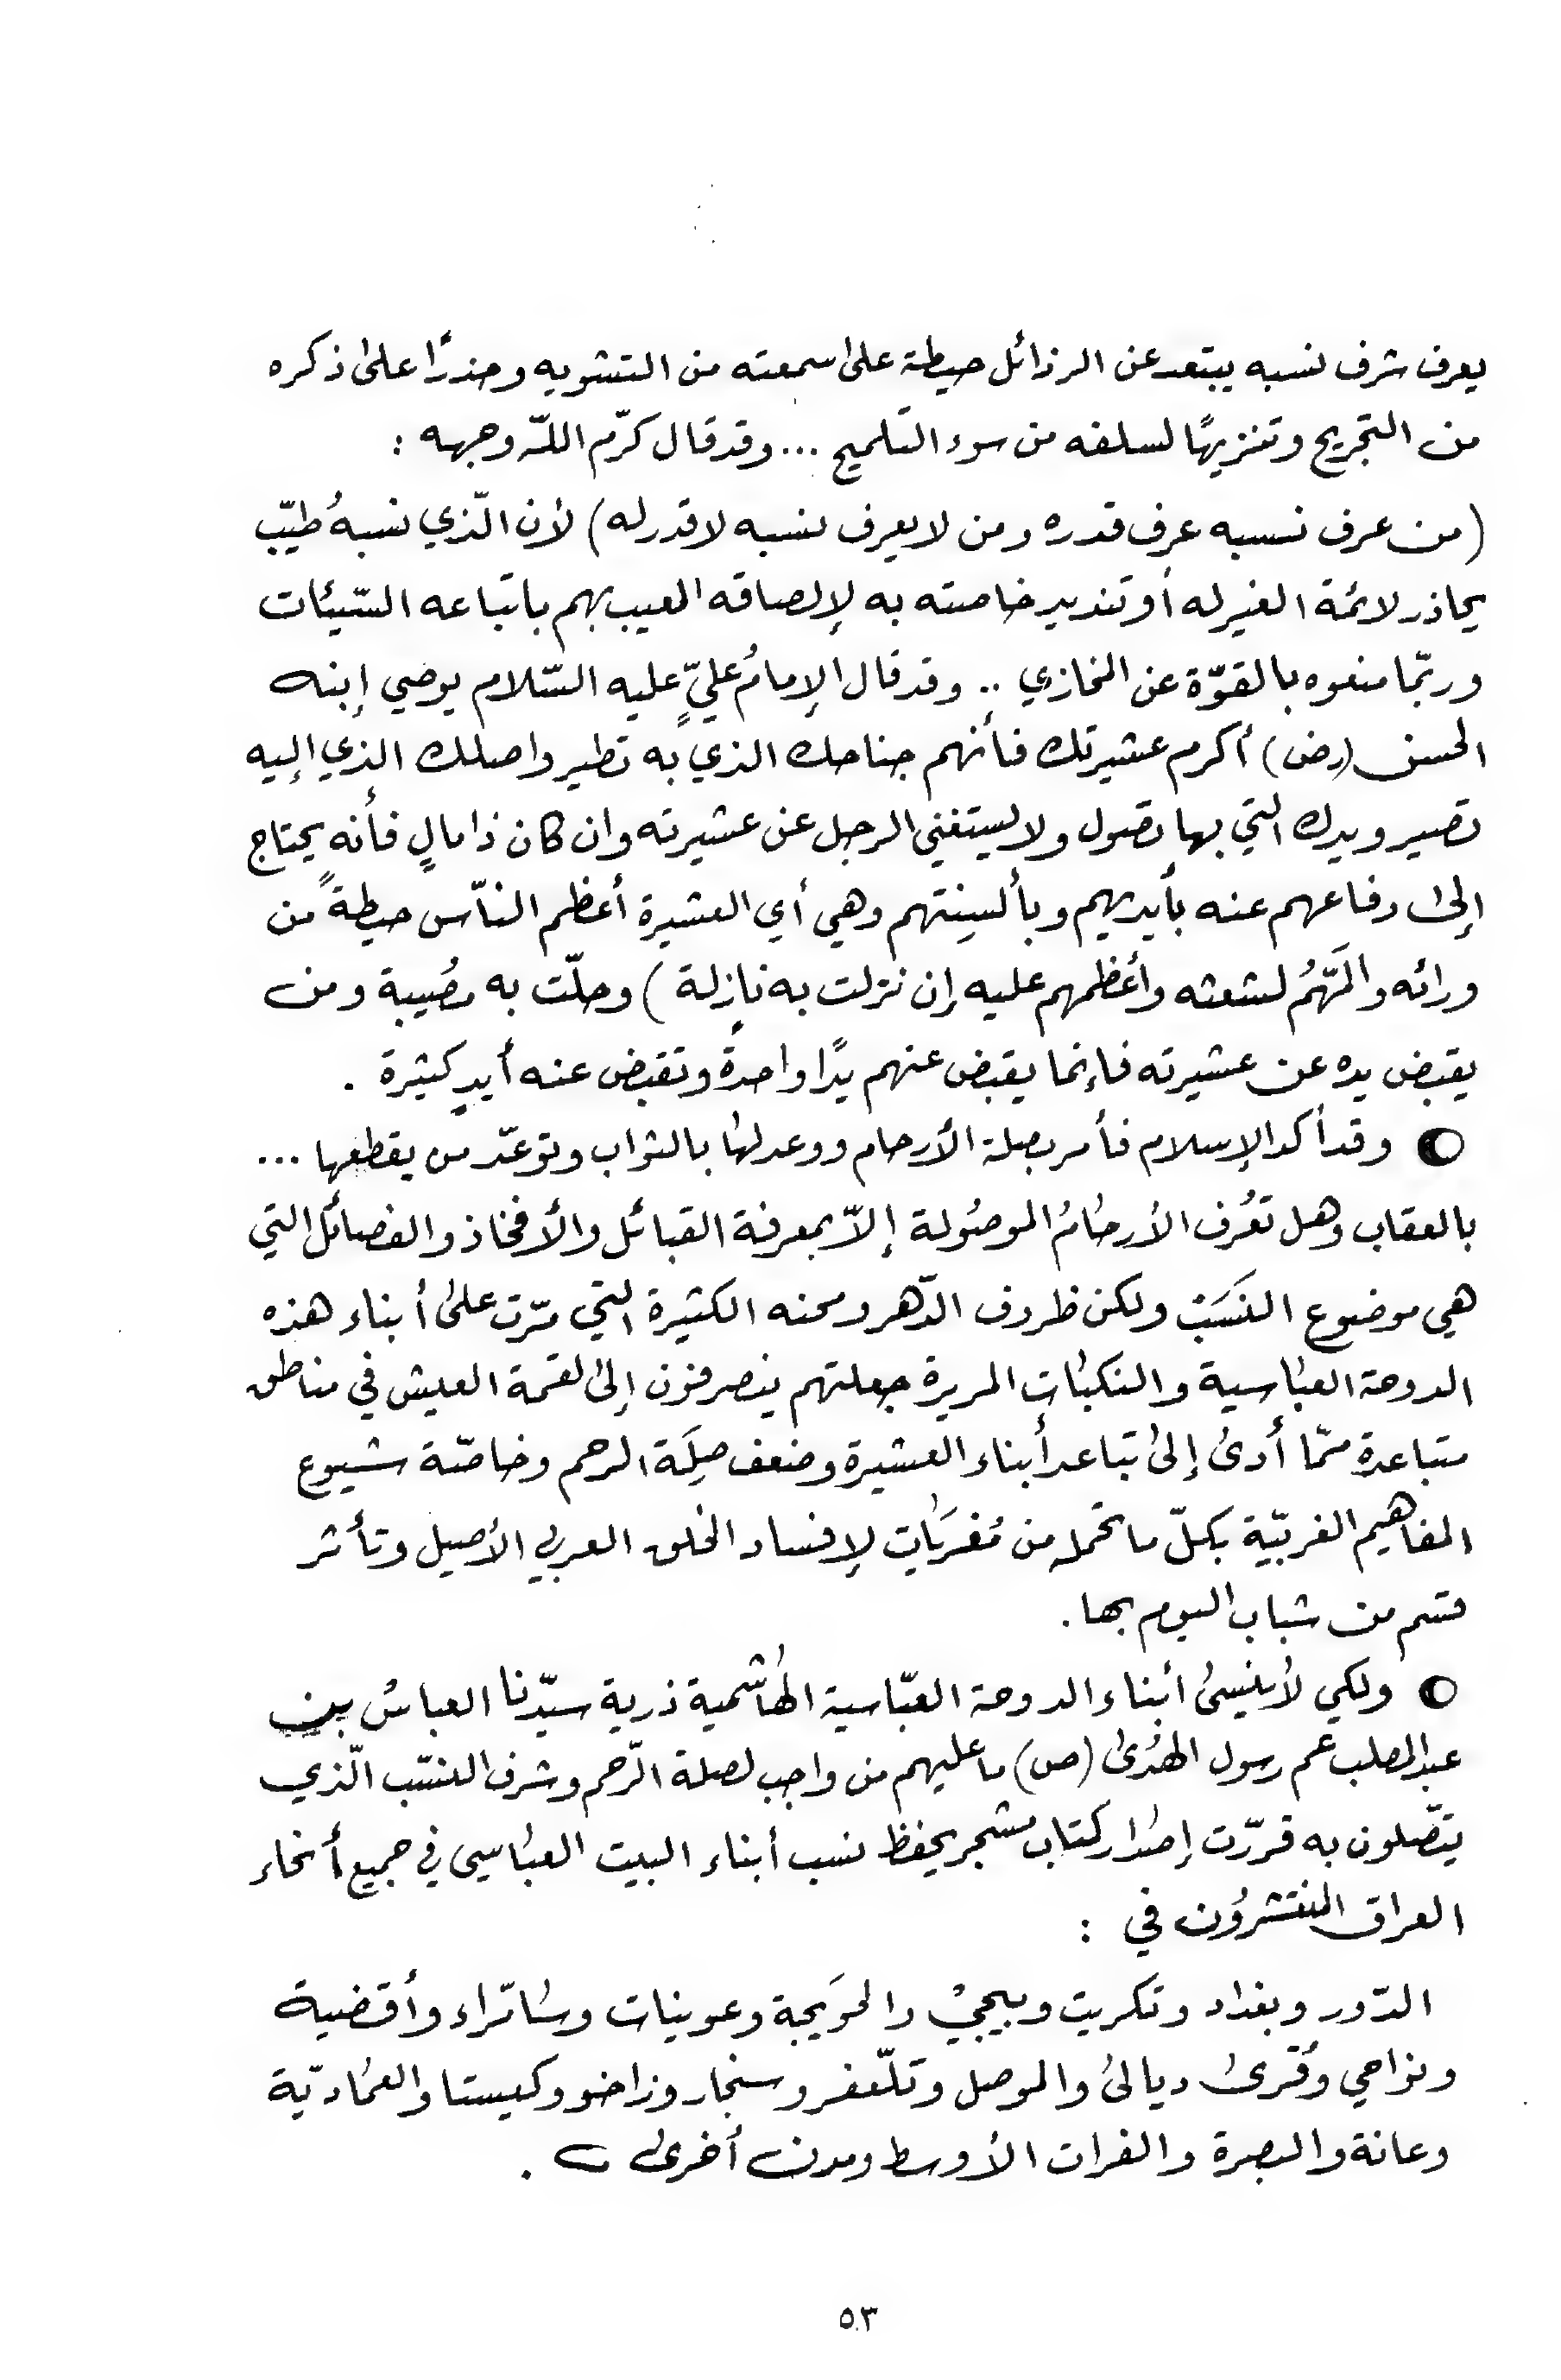 يعرف شرف نسبه يبتعد عن الرذائل حيطة على سمعته من التشويه وحذرًا على ذكره
من التجريح وتنزيهًا لسلفه من سوء التلميح ... وقد قال كرّم اللّه وجهه :
(من عرف نسبه عرف قدره ومن لا يعرف نسبه لا قدر له) لأن الّذي نسبهُ طيّب
يحاذر لائمة الغير له أو تنديد خاصته به لإلصاقه العيب بهم باتباعه السّيئات
وربّما منعوه بالقوّة عن المخازي .. وقد قال الإمامُ عليّ عليه السّلام يوصي إبنه
الحسن (رض) أكرم عشيرتك فأنهم جناحك الذي به تطير واصلك الذي إليه
تصير ويدك التي بها تصول ولا يستغني الرجل عن عشيرته وان كان ذا مالٍ فأنه يحتاج
إلى دفاعهم عنه بأيديهم وبألسِنتهم وهي أي العشيرة أعظم النّاس حيطةً من
ورائه والمَّهُم لشعثه وأعظمهم عليه إن نزلت به نازِلة ) وحلّت به مصُيبة ومن
يقبض يده عن عشيرته فإنما يقبض عنهم يدًا واحدةً وتقبض عنه أيدٍ كثيرة .
وقد أكد الإسلام فأمر بصلة الأرحام ووعد لها بالثواب وتوعّد من يقطعها ...
بالعقاب وهل تعُرف الأرحامُ الموصُولة إلاّ بمعرفة القبائل والأفخاذ والفصائل التي
هي موضوع النسَبْ ولكن ظروف الدّهر ومحنه الكثيرة التي مرّت على أبناء هذه
الدوحة العباسية والنكبات المريرة جعلتهم ينصرفون إلى لقمة العيش في مناطق
متباعدة ممّا أدى إلى تباعد أبناء العشيرة وضعف صِلَة الرحم وخاصّة شيوع
المفاهيم الغربيّة بكلّ ما تحمله من مُغريَات لإفساد الخلق العربي الأصيل وتأثر
قسم من شباب اليوم بها .
ولكي لا ينسى أبناء الدوحة العبّاسية الهاشمية ذرية سيّدنا العباسُ بين
عبد المطلب عم رسول الهُدى (ص) ما عليهم من واجب لصلة الرّحم وشرف النسّب الّذي
يتّصلون به قررّت إصدار كتاب مشجر يحفظ نسب أبناء البيت العباسي في جميع أنحاء
العراق المنتشرُون في :
الدّور وبغداد وتكريت وبيجي والحوَيجة وعوينات وسامّراء وأقضية
ونواحي وقُرى ديالى والموصل وتلّعفر وسنجار وزاخو وكيستا والعمَاديّة
وعانة والبصرة والفرات الأوسط ومدن أخرى .
٥٣